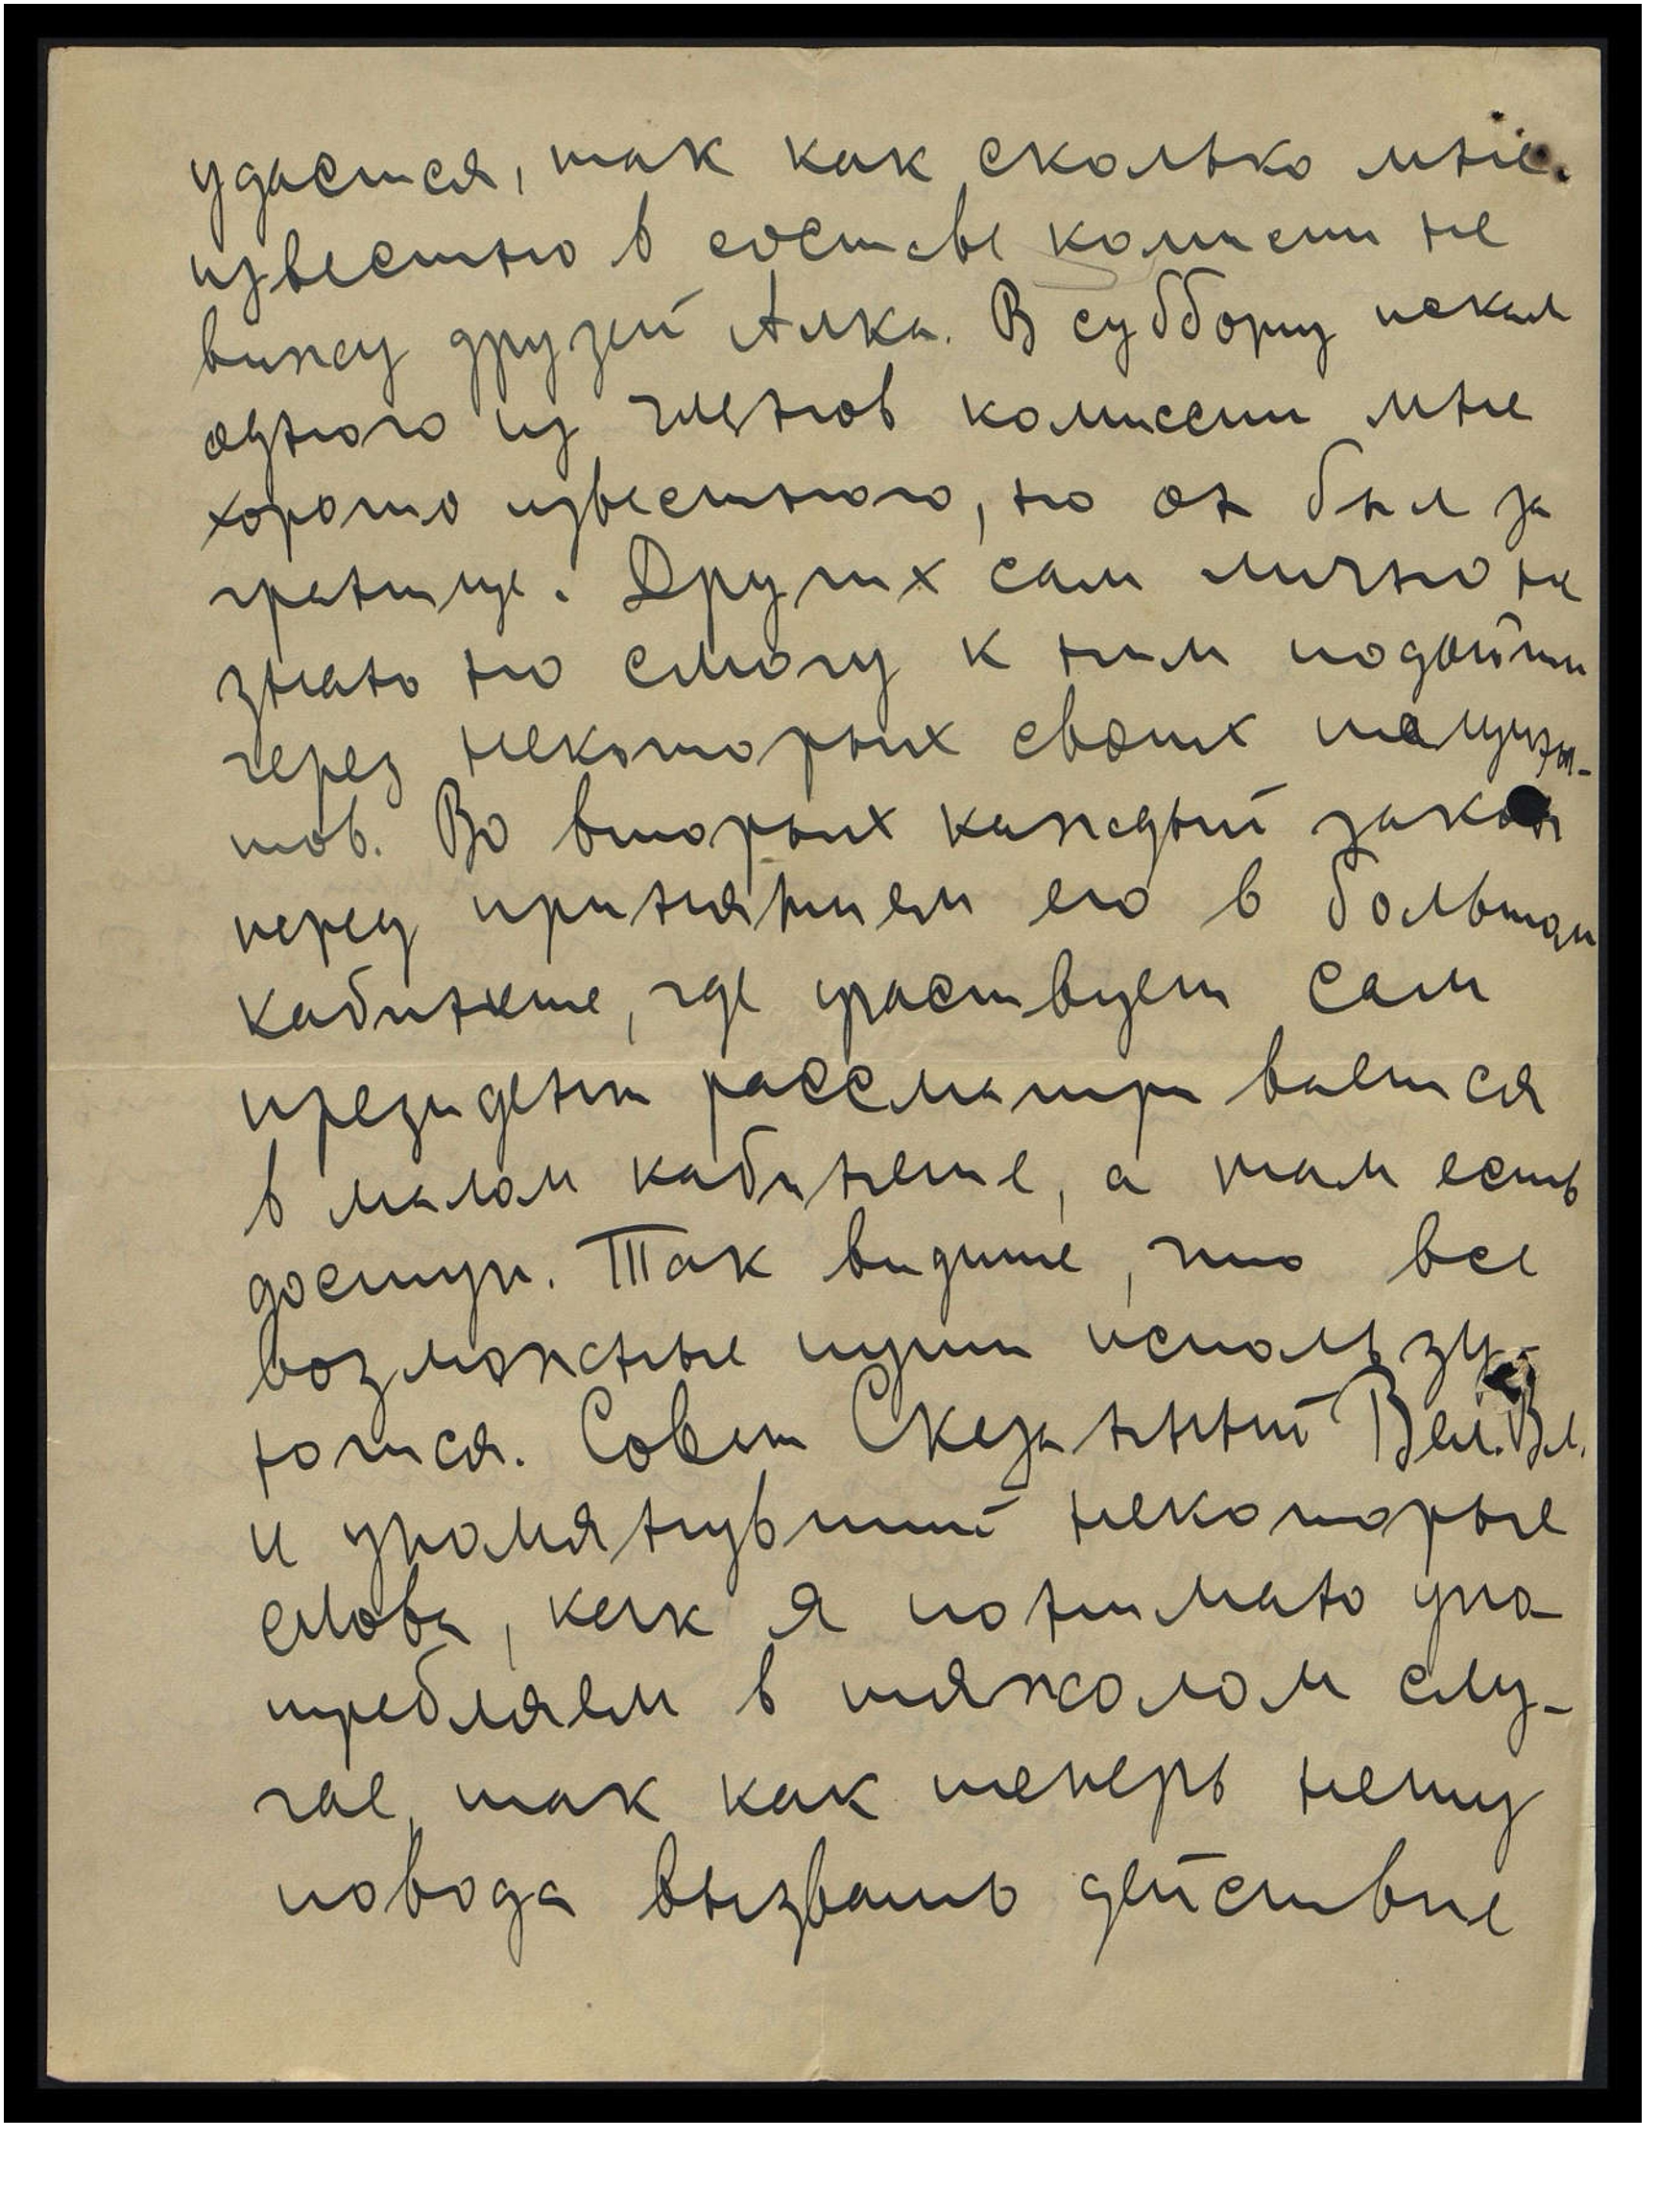 удастся, так как сколько мне
известно в составе комисии не
вижу друзей Алка. В субботу искал
одного из членов комиссии мне
хорошо известного, но он был за
границе. Других сам лично не
знаю но смогу к ним подойти
через некоторых своих
тов. Во вторых каждый закон
перед принятием его в большом
кабинете, где участвует сам
президент рассматривается
в малом кабинете, а там есть
доступ. Так видите, что все
возможные пути использу-
ются. Совет Сказанный Вел. Вл.
и упомянувший некоторые
слова, как я понимаю упо-
требляем в тяжолом слу-
чае, так как теперь нету
повода вызвать действие